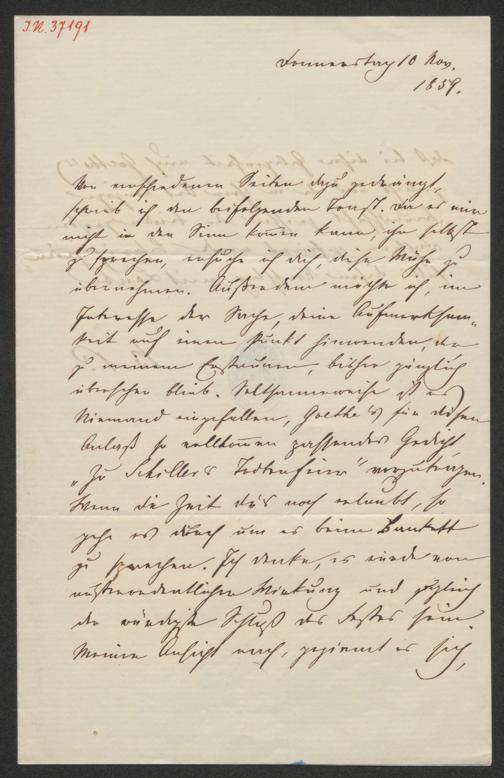 I.N. 37191
Donnerstag 10 Nov.
1859.
Von verschiedenen Seiten dazu gedrängt,
schrieb ich den beifolgenden Toast. Da es mir
nicht in den Sinn komen kann, ihn selbst
zu sprechen, ersuche ich dich, diese Mühe zu
übernehmen. Außerdem möchte ich, im
Interesse der Sache, deine Aufmerksam-
keit auf einen Punkt hinwenden, der
zu meinem Erstaunen, bisher gänzlich
übersehen blieb. Seltsamerweise ist es
Niemand eingefallen, Goethe's für diesen
Anlaß so vollkomen passendes Gedicht
"Zu Schiller's Todtenfeier" vorzutragen.
Wenn die Zeit dies noch erlaubt, so
gehe es durch um es beim Bankett
zu sprechen. Ich denke, es würde von
außerordentlicher Wirkung und zugleich
der würdigste Schluß des Festes sein.
Meiner Ansicht nach, geziemt es sich,